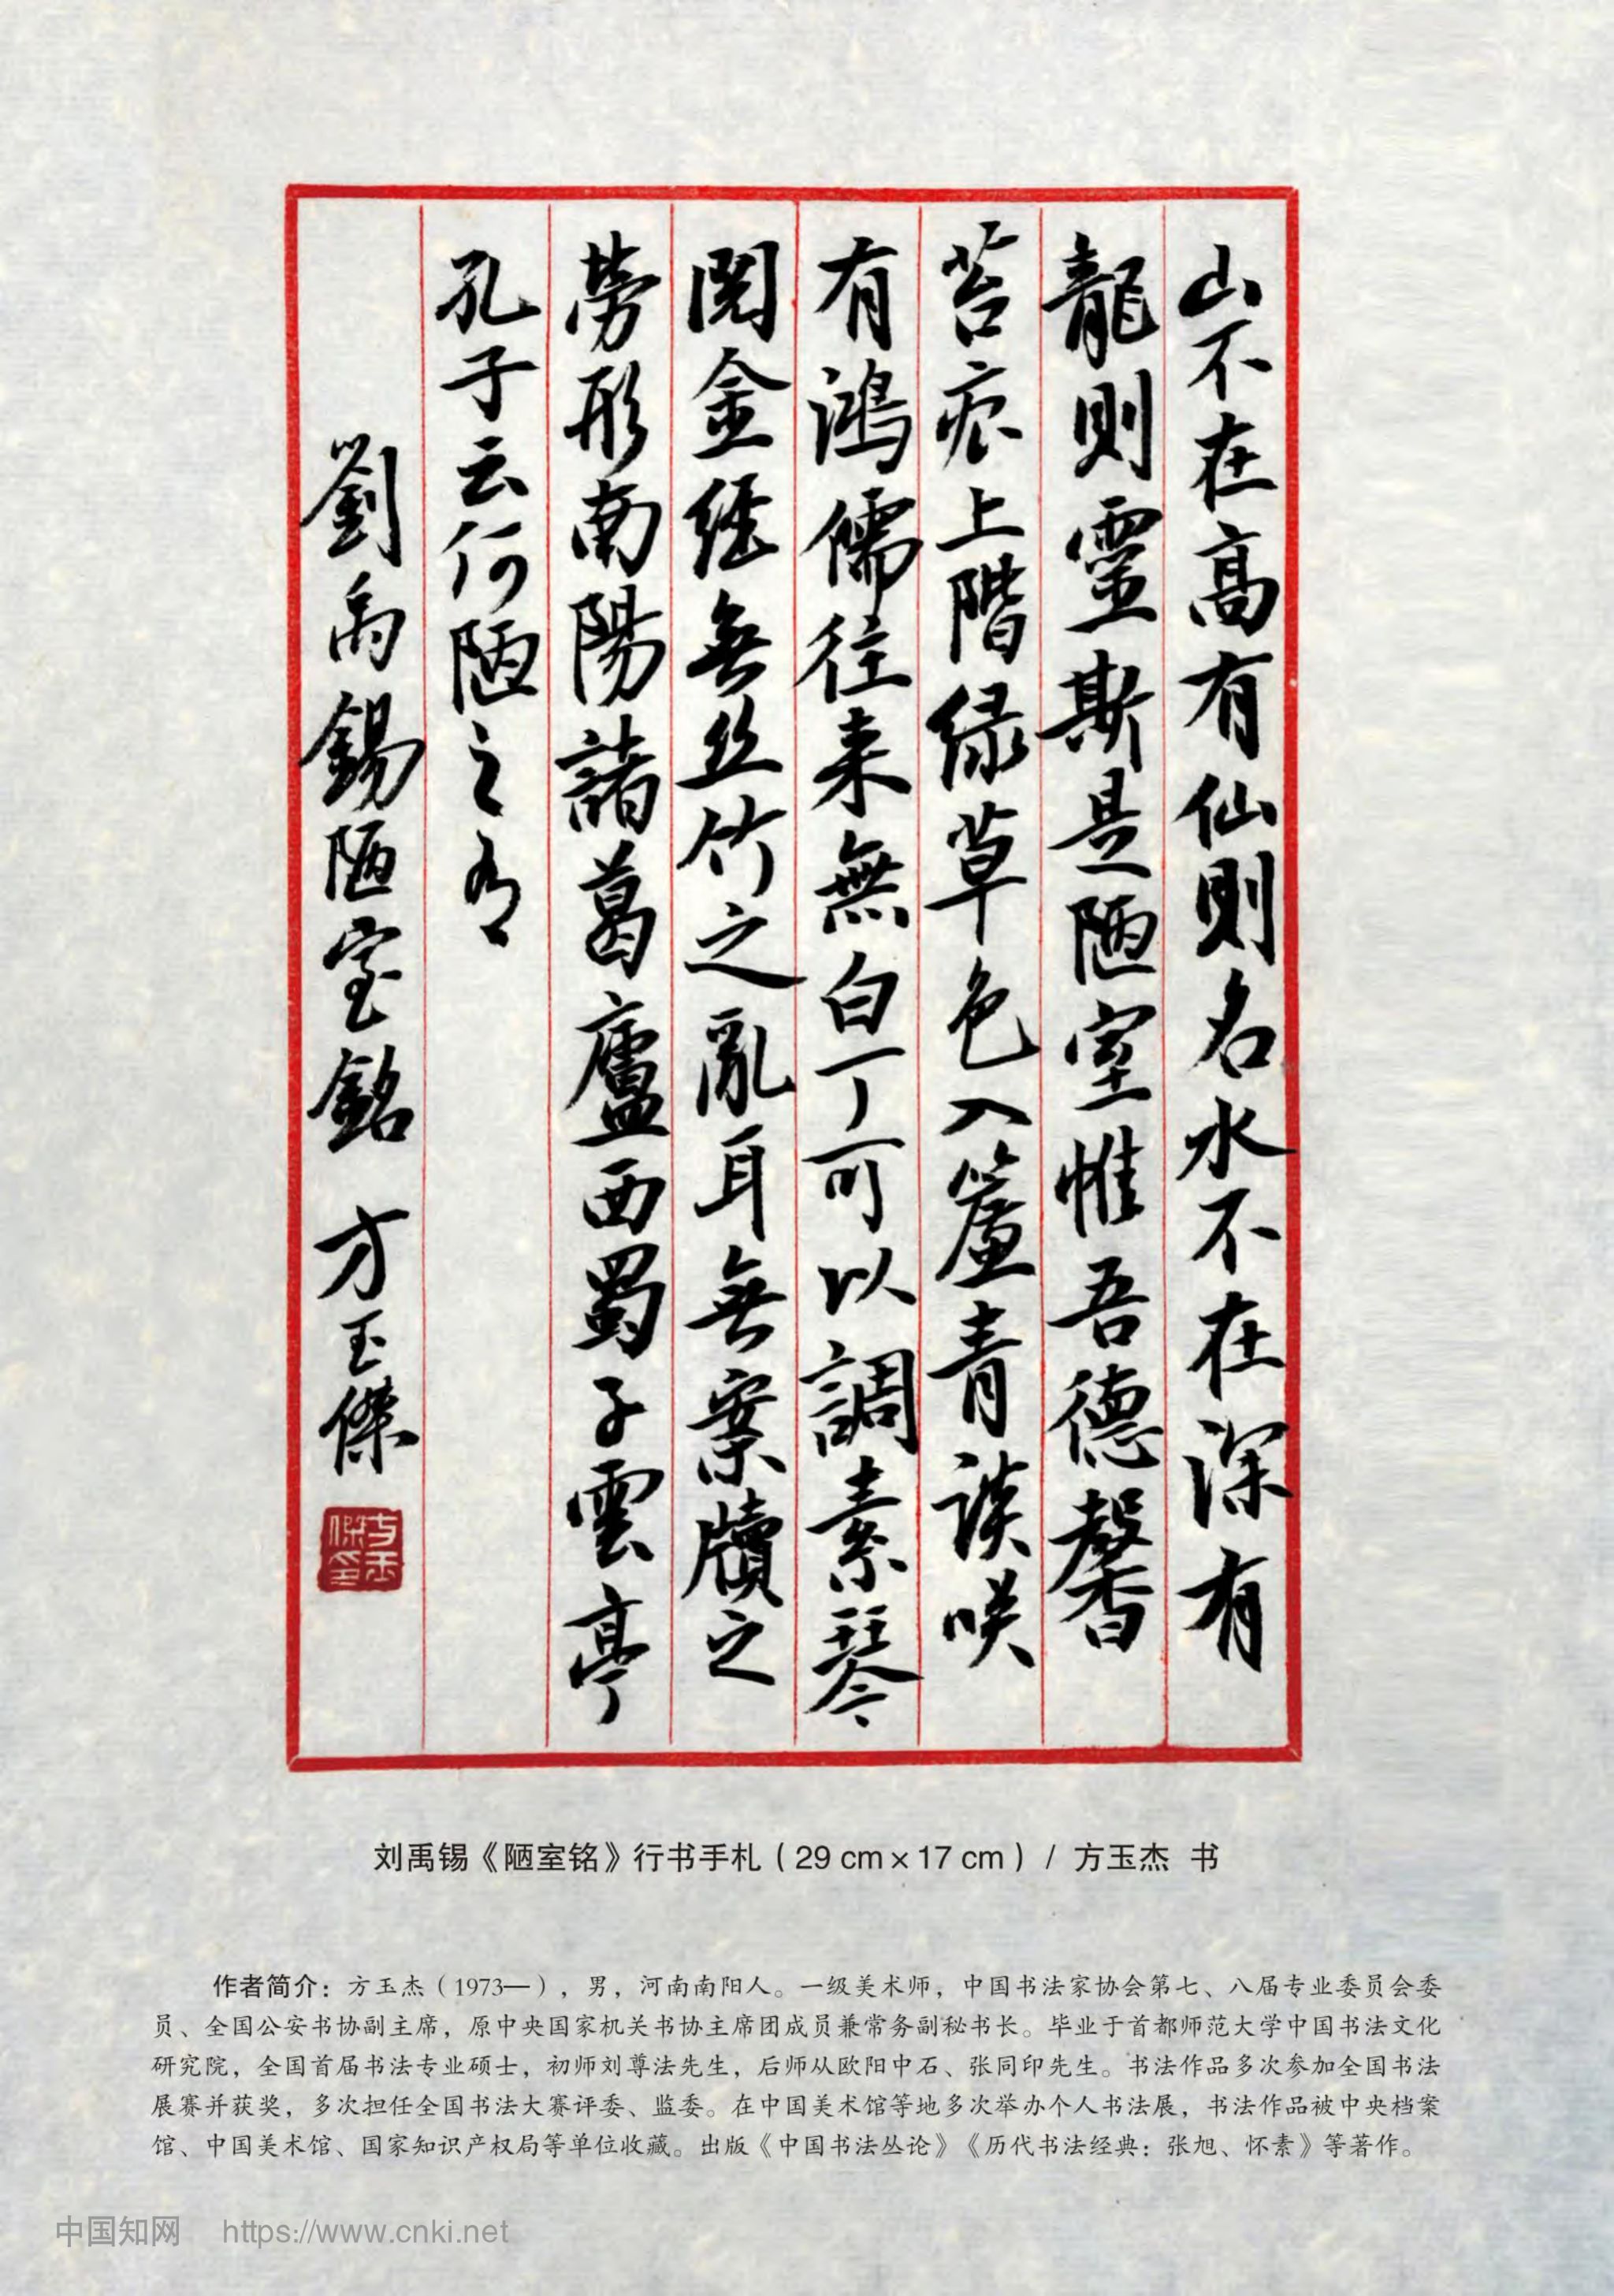 山不在高有仙则名水不在深有
龍則靈斯是陋室惟吾德馨
苔痕上階绿草色入簾青談咲
有鴻儒往来無白丁可以調素琴
閱金経無丝竹之亂耳無案牘之
勞形南陽諸葛廬西蜀子雲亭
孔子云何陋之有
劉禹錫陋室銘 方玉傑
方玉傑印
刘禹锡《陋室铭》行书手札（29 cm×17 cm）/ 方玉杰 书
作者简介：方玉杰（1973—），男，河南南阳人。一级美术师，中国书法家协会第七、八届专业委员会委
员、全国公安书协副主席，原中央国家机关书协主席团成员兼常务副秘书长。毕业于首都师范大学中国书法文化
研究院，全国首届书法专业硕士，初师刘尊法先生，后师从欧阳中石、张同印先生。书法作品多次参加全国书法
展赛并获奖，多次担任全国书法大赛评委、监委。在中国美术馆等地多次举办个人书法展，书法作品被中央档案
馆、中国美术馆、国家知识产权局等单位收藏。出版《中国书法丛论》《历代书法经典：张旭、怀素》等著作。
中国知网 https://www.cnki.net